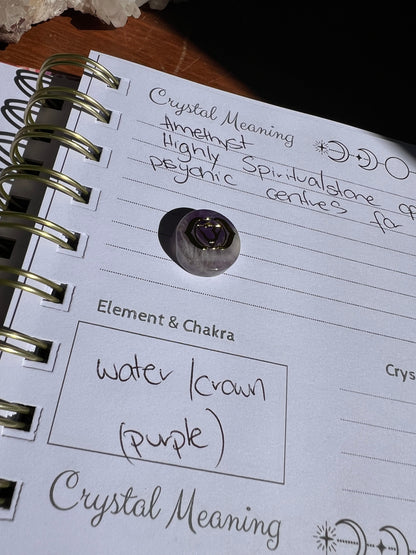 Crystal Meaning
Amethyst
Highly Spiritual stone
psychic centres for
Element & Chakra
Crys
water /crown
(purple)
Crystal Meaning